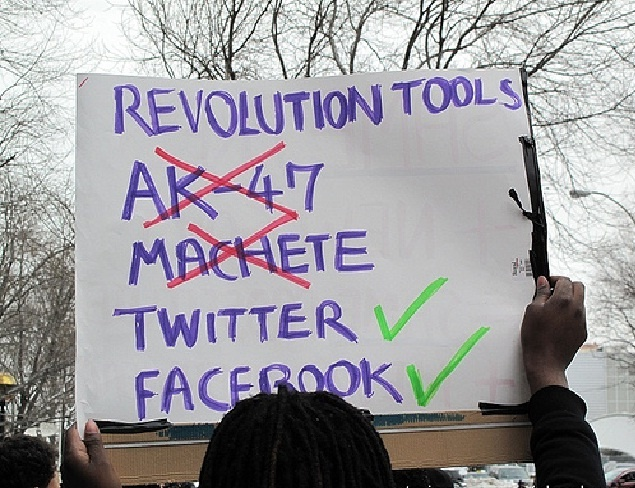 REVOLUTION TOOLS
AK-47
MACHETE
TWITTER
FACEBOOK